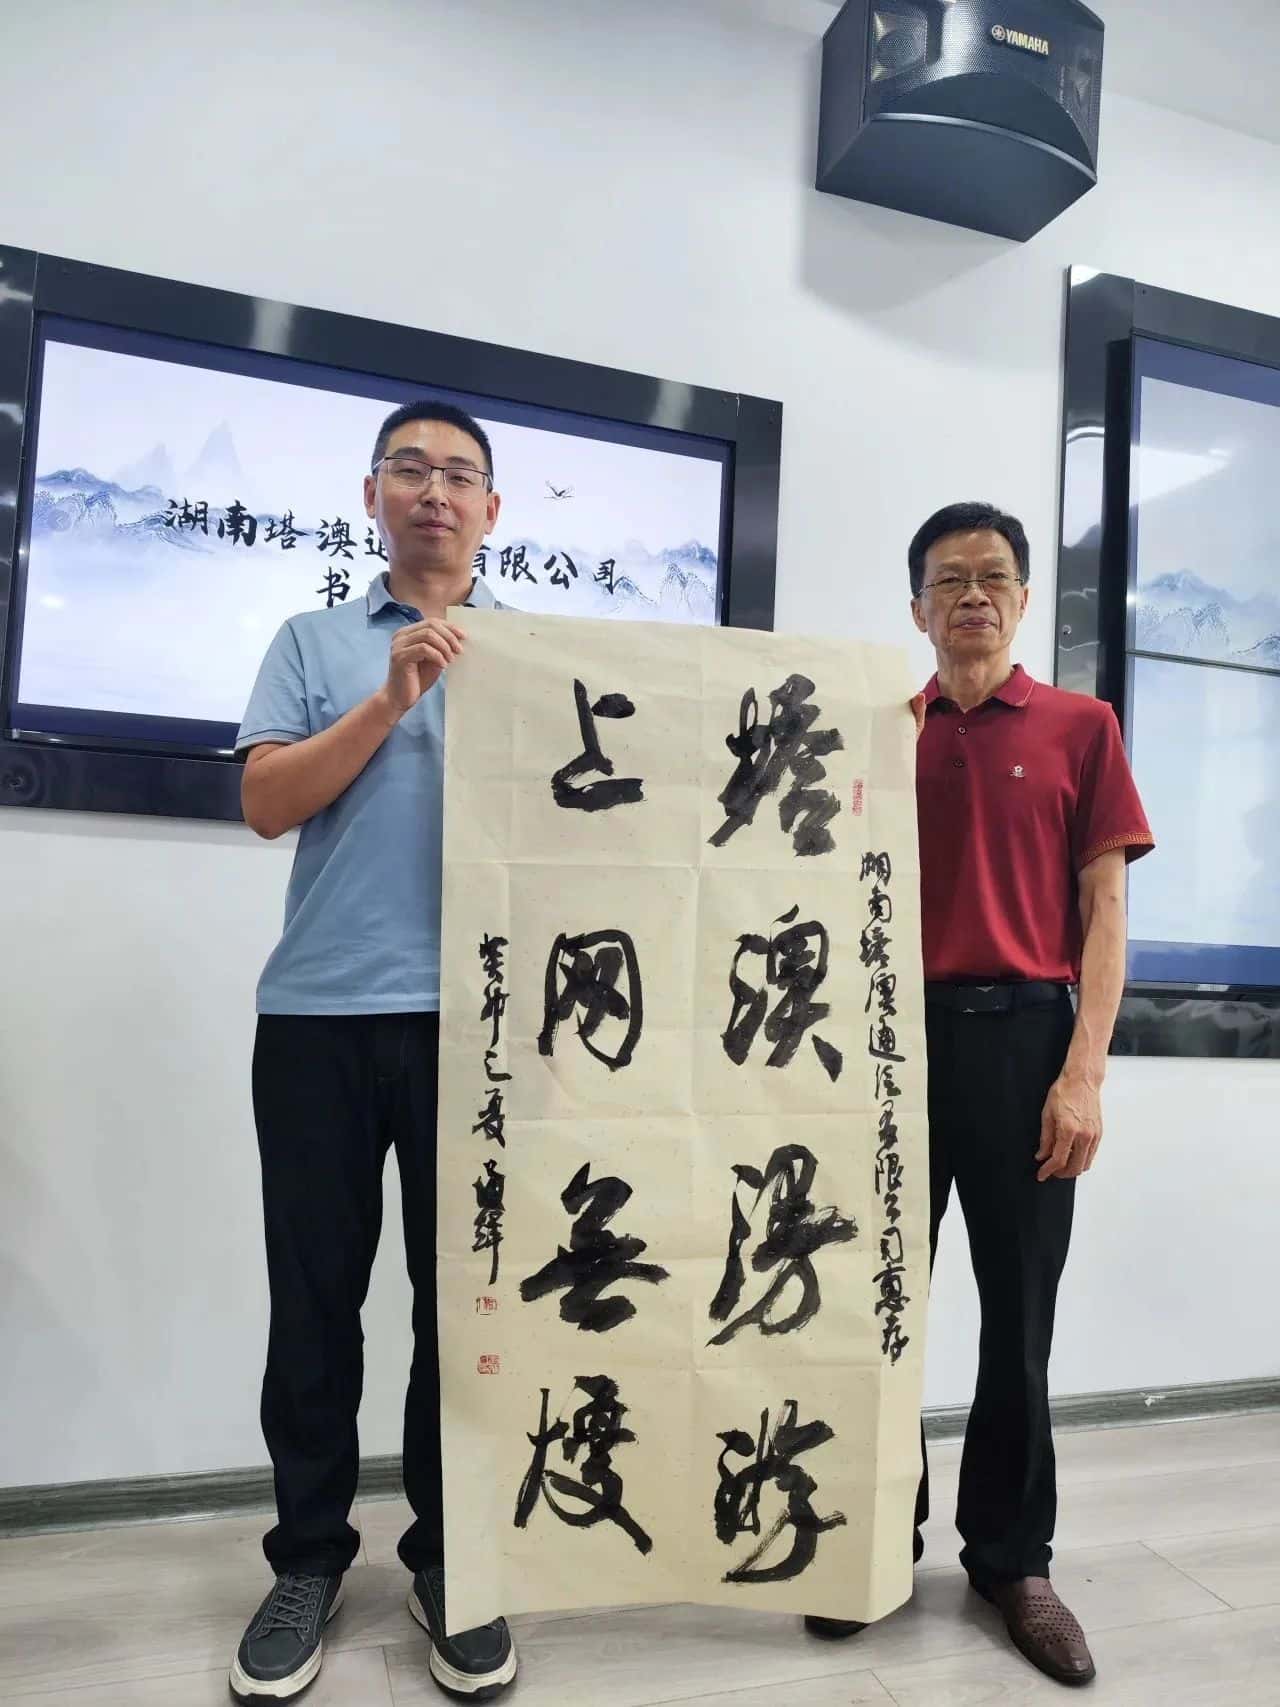 YAMAHA
湖南塔澳通 有限公司
书
湖南塔澳通信有限公司惠存
塔澳漫游
上网無
癸卯之夏